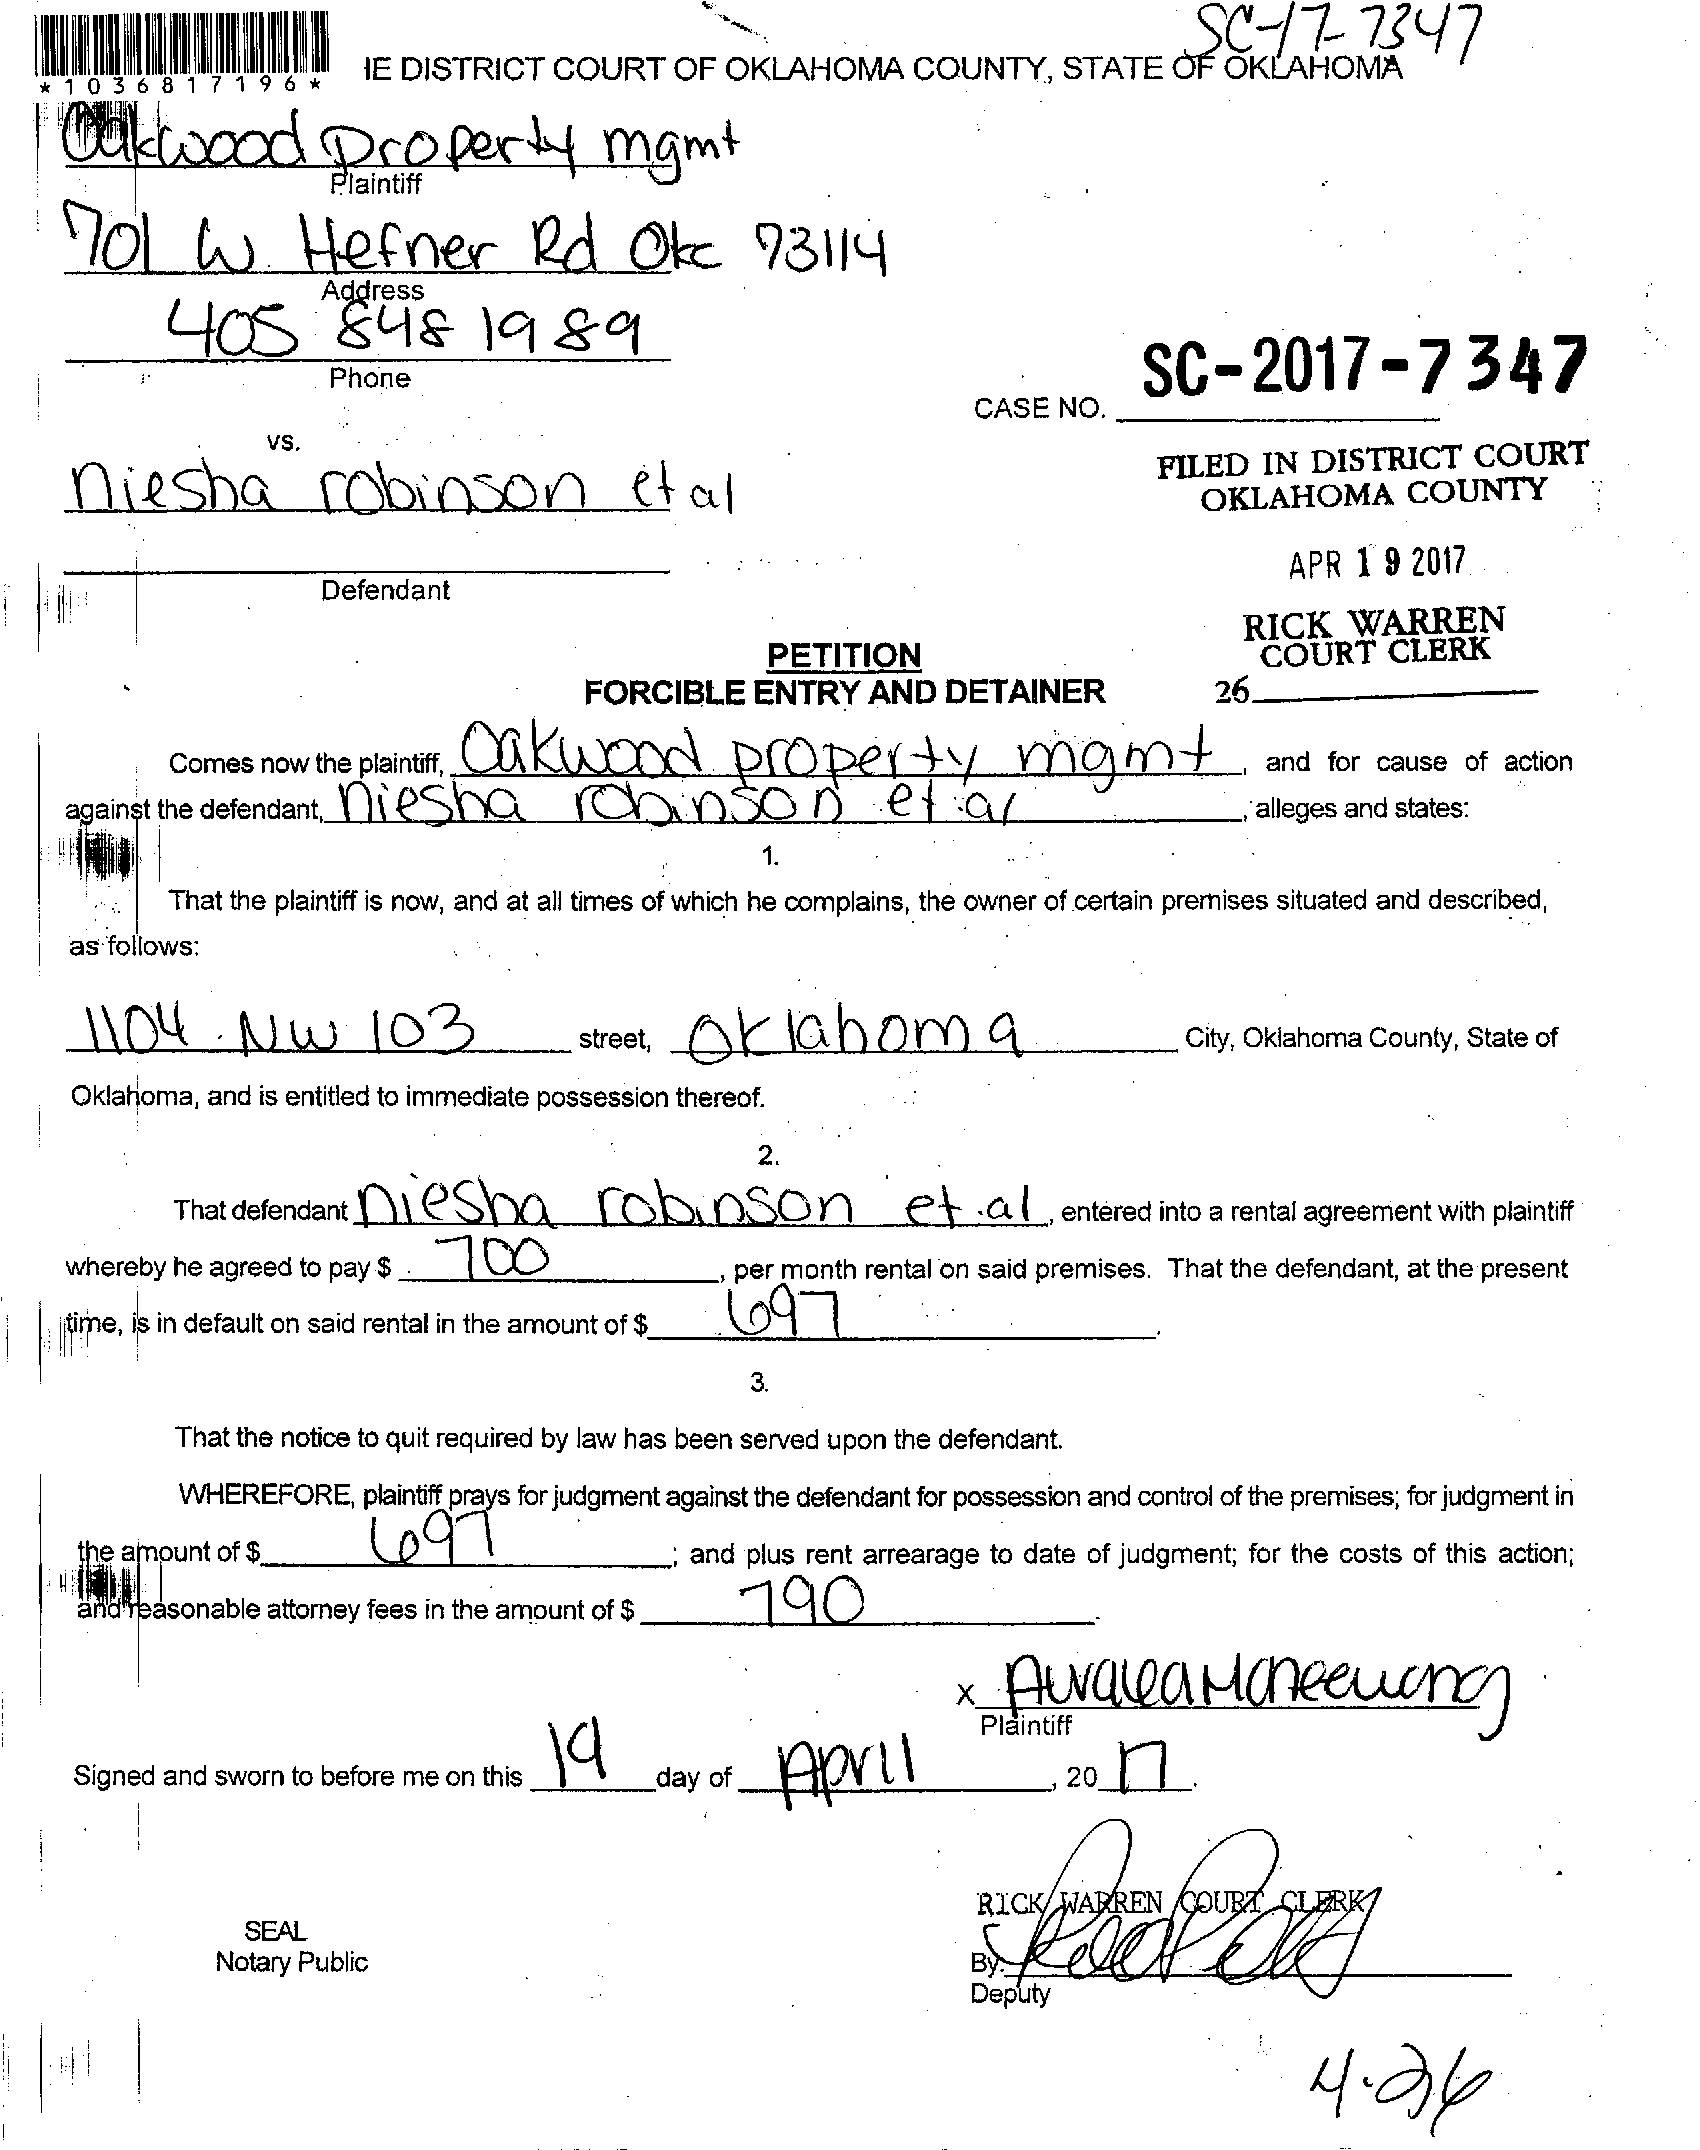 SC-17-7347
IE DISTRICT COURT OF OKLAHOMA COUNTY, STATE OF OKLAHOMA
*1036817196*
Oakwood property mgmt
Plaintiff
701 W Hefner Rd Okc 73114
Address
405 848 1989
Phone
SC-2017-7347
CASE NO.
vs.
niesha robinson et al
FILED IN DISTRICT COURT
OKLAHOMA COUNTY
APR 19 2017
Defendant
RICK WARREN
COURT CLERK
26
PETITION
FORCIBLE ENTRY AND DETAINER
Comes now the plaintiff, Oakwood property mgmt, and for cause of action
against the defendant, niesha robinson et al, alleges and states:
1.
That the plaintiff is now, and at all times of which he complains, the owner of certain premises situated and described,
as follows:
1104 NW 103 street, Oklahoma City, Oklahoma County, State of
Oklahoma, and is entitled to immediate possession thereof.
2.
That defendant niesha robinson et al, entered into a rental agreement with plaintiff
whereby he agreed to pay $ 700, per month rental on said premises. That the defendant, at the present
time, is in default on said rental in the amount of $ 697.
3.
That the notice to quit required by law has been served upon the defendant.
WHEREFORE, plaintiff prays for judgment against the defendant for possession and control of the premises; for judgment in
the amount of $ 697; and plus rent arrearage to date of judgment; for the costs of this action;
and reasonable attorney fees in the amount of $ 790.
x
Plaintiff
Signed and sworn to before me on this 19 day of April, 2017.
RICK WARREN COURT CLERK
SEAL
Notary Public
By:
Deputy
4.26